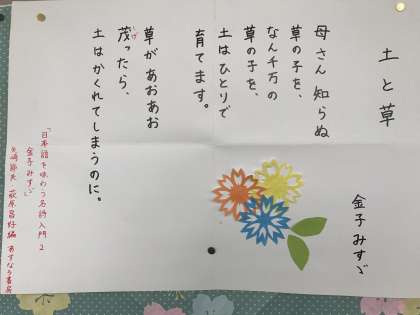 土と草
金子みすゞ
母さん知らぬ
草の子を、
なん千万の
草の子を、
土はひとりで
育てます。
草があおあお
茂ったら、
土はかくれてしまうのに。
「日本語を味わう名詩入門2
金子みすゞ」
矢崎節夫 萩原昌好編 あすなろ書房